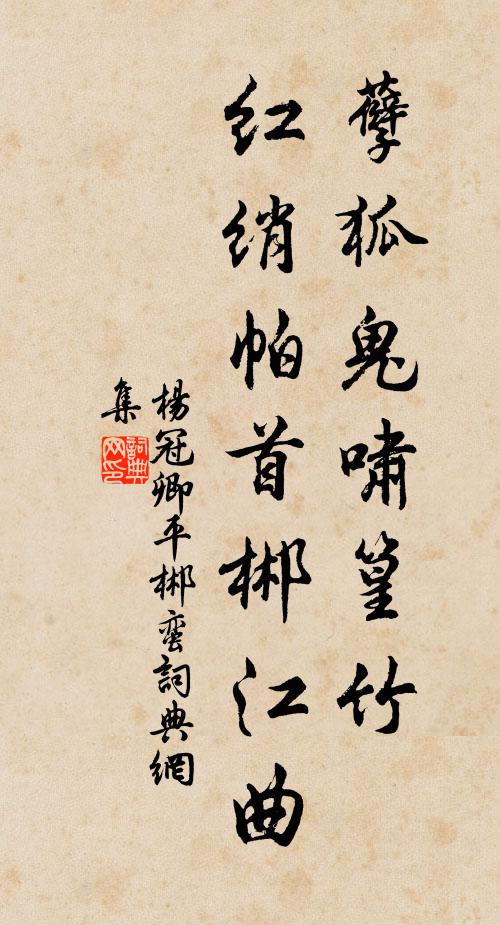 孽狐鬼啸篁竹
红绡帕首郴江曲
杨冠卿平郴蛮词典網
集
詞典網印